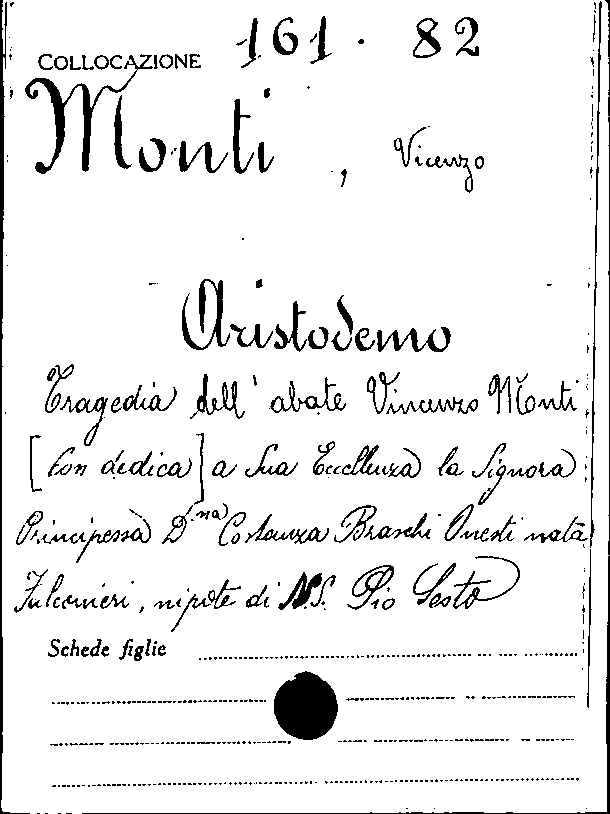 COLLOCAZIONE 161. 82
Monti, Vicenzo
Aristodemo
Tragedia dell'abate Vincenzo Monti
[Con dedica] a Sua Eccellenza la Signora
Principessa D.na Costanza Braschi Onesti nata
Falconieri, nipote di N.S. Pio Sesto
Schede figlie